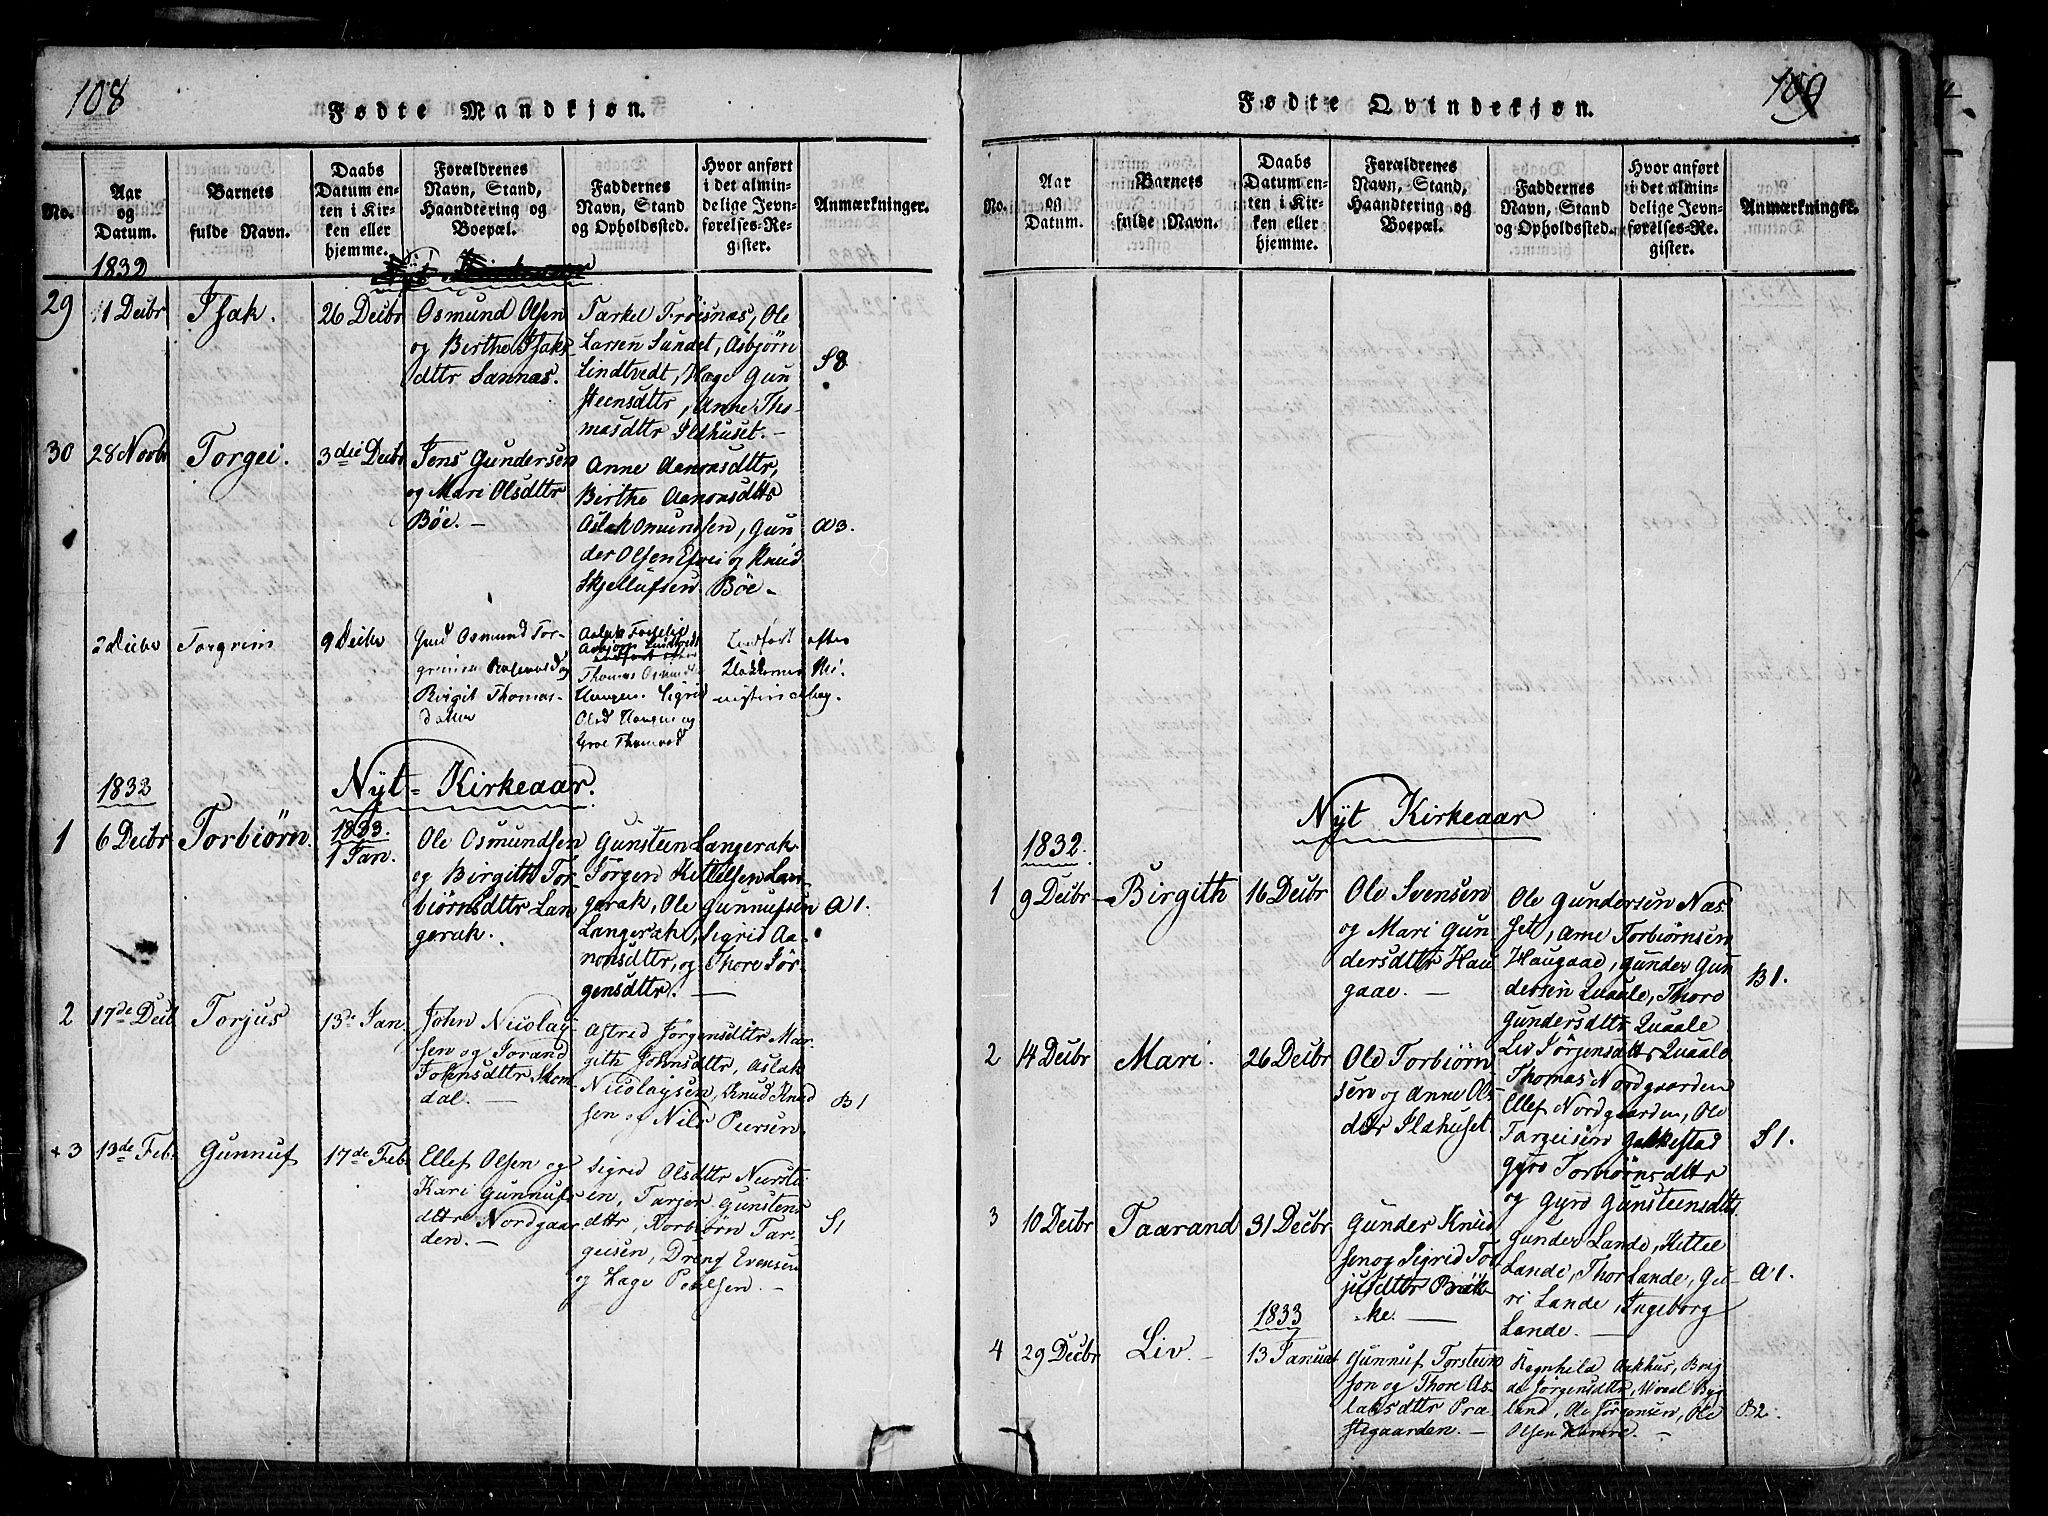 108
Fødte Mandkjøn.
No.
Aar
og
Datum.
Barnets
fulde Navn.
Daabs
Datum en-
ten i Kir-
ken eller
hjemme.
Forældrenes
Navn, Stand,
Haandtering og
Boepæl.
Faddernes
Navn, Stand
og Opholdssted.
Hvor anført
i det almin-
delige Jevn-
førelses-Re-
gister.
Anmærkninger.
1832
29
11 Decbr
Isak.
26 Decbr
Osmund Olsen
og Birthe Isaks-
dttr Sannæs.
Tarkel Frøisnæs, Ole
Larsen Sundet, Asbjørn
Lindtvedt, Hæge Gun
steensdttr, Anne Tho-
masdttr Ildhuset. -
S8
30
28 Novbr
Torgei.
3die Decbr
Jens Gundersen
og Mari Olsdttr
Bøe. -
Anne Aanonsdttr,
Birthe Aanonsdttr
Aslak Omundsen, Gun
der Olsen og Knud
Skjellufsen Bøe -
A3.
2 Decbr
Torgrim
9 Decbr
Osmund Tor-
grimsen
Birgit Thomas-
datter
Thomas Osmunds
Haugen. Sigrid
Olsd Haugen og
Groe Thomasd
Indført efter
Klokkerens Mi-
nisterialbog.
1832
Nyt-Kirkeaar.
1
6 Decbr
Torbiørn.
1833.
1 Jan.
Ole Osmundsen
og Birgith Tor-
biørnsdttr Lan
gerak.
Gunsteen Langerak.
Jørgen Kittelsen Lan
gerak, Ole Gunnufsen
Langerak, Sigrid Aa-
nonsdttr, og Thore Jør-
gensdttr. -
A1.
2
17de Decb.
Torjus
13de Jan.
John Nicolay
sen og Torand
Johnsdttr Skom
dal. -
Astrid Jørgensdttr Mar
gith Johnsdttr, Aslak
Nicolaysen, Knud Knud
sen og Nils Persen.
B1
+ 3
13de Feb.
Gunnuf
17de Feb.
Ellef Olsen og
Kari Gunnufs
dttr Nordgaar
den. -
Sigrid Olsdttr Nersti
en, Tarjer Gunstens
dttr, Torbiørn Tar-
geisen, Dreng Evensen
og Lage Poulsen. -
S1
109
Fødte Qvindekjøn.
No.
Aar
og
Datum.
Barnets
fulde Navn.
Daabs
Datum en-
ten i Kir-
ken eller
hjemme.
Forældrenes
Navn, Stand,
Haandtering og
Boepæl.
Faddernes
Navn, Stand
og Opholdssted.
Hvor anført
i det almin-
delige Jevn-
førelses-Re-
gister.
Anmærkninger.
Nyt Kirkeaar
1832.
1
9 Decbr
Birgith
16 Decbr
Ole Svensen
og Mari Gun
dersdttr Hau
gaae. -
Ole Gundersen Næs
set, Arne Torbiørnsen
Haugaae, Gunder Gun
dersen Quaale, Thore
Gundersdttr Quaale
Liv Jørjensdttr Quaale
B1.
2
14 Decbr
Mari.
26 Decbr
Ole Torbiørn
sen og Anne Ols
dttr Ildhuset.
Thomas Nordgaarden
Ellef Nordgaarden, Ole
Targeisen Gakkestad
Gyro Torbiørnsdttr
og Gyro Gunsteensdttr
S1.
3
10 Decbr
Taarand
31 Decbr
Gunder Knud
sen og Sigrid Tor
jusdttr Brøk-
ke. -
Gunder Lande, Kittel
Lande, Thor Lande, Gu-
ri Lande, Ingeborg
Lande. -
A1.
4
29 Decbr
Liv. -
1833
13 Januar
Gunnuf Torsteen
sen og Thore As-
laksdttr Præ-
stegaarden. -
Ragnhild Aakhus, Brej
de Jørgensdttr, Byg
land, Ole Jørgensen, Ole
Olsen. -
B2.